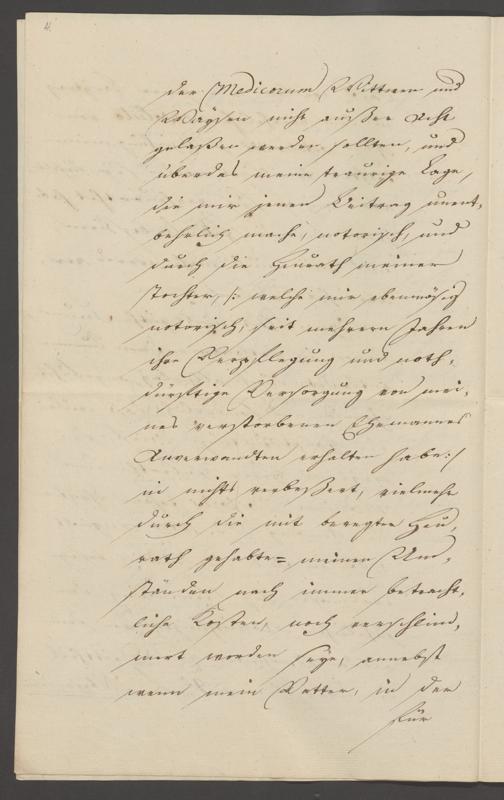 4.
der Medicorum Wittwen und
Waysen nicht außer Acht
gelaßen werden sollten, und
überdas meine traurige Lage,
die mir jenen Beitrag unent-
behrlich mache, notorisch, und
durch die Heurath meiner
Tochter, /: welche mir ebenmäsig
notorisch, seit mehrern Jahren
ihre Verpflegung und noth-
dürftige Versorgung von mei-
nes verstorbenen Ehemannes
Anverwandten erhalten habe :/
in nichts verbeßert, vielmehr
durch die mit beregter Heu-
rath gehabte= meinen Um-
ständen nach immer beträcht-
liche Kosten, noch verschlim-
mert worden seye, annebst
wenn mein Vetter, in der
für